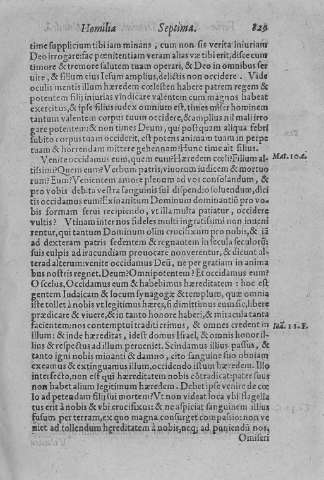 Homilia Septima. 829
time supplicium tibi iam minans, cum non sis verita iniuriam
Deo irrogare: fac pœnitentiam veram alias væ tibi erit, disce cum
timore & tremore salutem tuam operari, & Deo in omnibus ser
uire, & filium eius Iesum amplius, delictis non occidere. Vide
oculi mentis illum hæredem cœlestem habere patrem regem &
potentem filij iniurias vindicare valentem cum magnos habeat
exercitus, & ipse filius iudex omnium est, times miser hominem
tantum valentem corpus tuum occidere, & amplius nil mali irro
gare potentem: & non times Deum, qui postquam aliqua febri
subito corpus tuum occiderit, est potens animam tuam in perpe
tuum & horrendam mittere gehennam? Hunc time ait filius.
Venite occidamus eum, quem eum? Hæredem cœli? Filium al-
tissimi? Quem eum? Verbum patris, viuorum iudicem & mortuo
rum? Eum? Venientem amore plenum ad vos consolandum, &
pro vobis debita vestra sanguinis sui dispendio soluendum, dici
tis occidamus eum? Exinanitum Dominum dominantiū pro vo-
bis formam serui recipiendo, vt illa multa patiatur, occidere
vultis? Vtinam internos fideles multi ingratissimi non inueni
rentur, qui tantum Dominum olim crucifixum pro nobis, & iā
ad dexteram patris sedentem & regnaturum in secula seculorū
suis culpis ad iracundiam prouocare non verentur, & dicunt al-
ter ad alterum: venite occidamus Deū, ne per gratiam in anima
bus nostris regnet. Deum? Omnipotentem? Et occidamus eum?
O scelus. Occidamus eum & habebimus hæreditatem: hoc est
gentem Iudaicam & locum synagogæ & templum, quæ omnia
iste tollet à nobis vt legitimus hæres, si dimittimus eum sic, libere
prædicare & viuere, & in tanto honore haberi, & miracula tanta
facientem: nos contemptui traditi crimus, & omnes credent in
illum: & inde hæreditas, idest domus Israel, & omnis honor il-
lius & respectus ad illum peruenict. Scindamus illius passus, &
tanto igni nobis minanti & damno, cito sanguine suo obuiam
exeamus & extinguamus illum, occidendo istum hæredem. Illo
interfecto, non est qui hæreditatem nobis cōtradicat: pater suus
non habet alium legitimum hæredem. Debet ipse venire de cœ
lo ad petendam filij sui mortem? Vt non videat loca vbi flagella
tus erit à nobis & vbi crucifixus: & ne aspiciat sanguinem illius
fusum per terram, ex quo magna consurget compassio: non ve
niet ad tollendum hereditatem à nobis, neq; ad puniendū nos,
Omiseri
Mat. 10.d.
Ioã. 11.F.